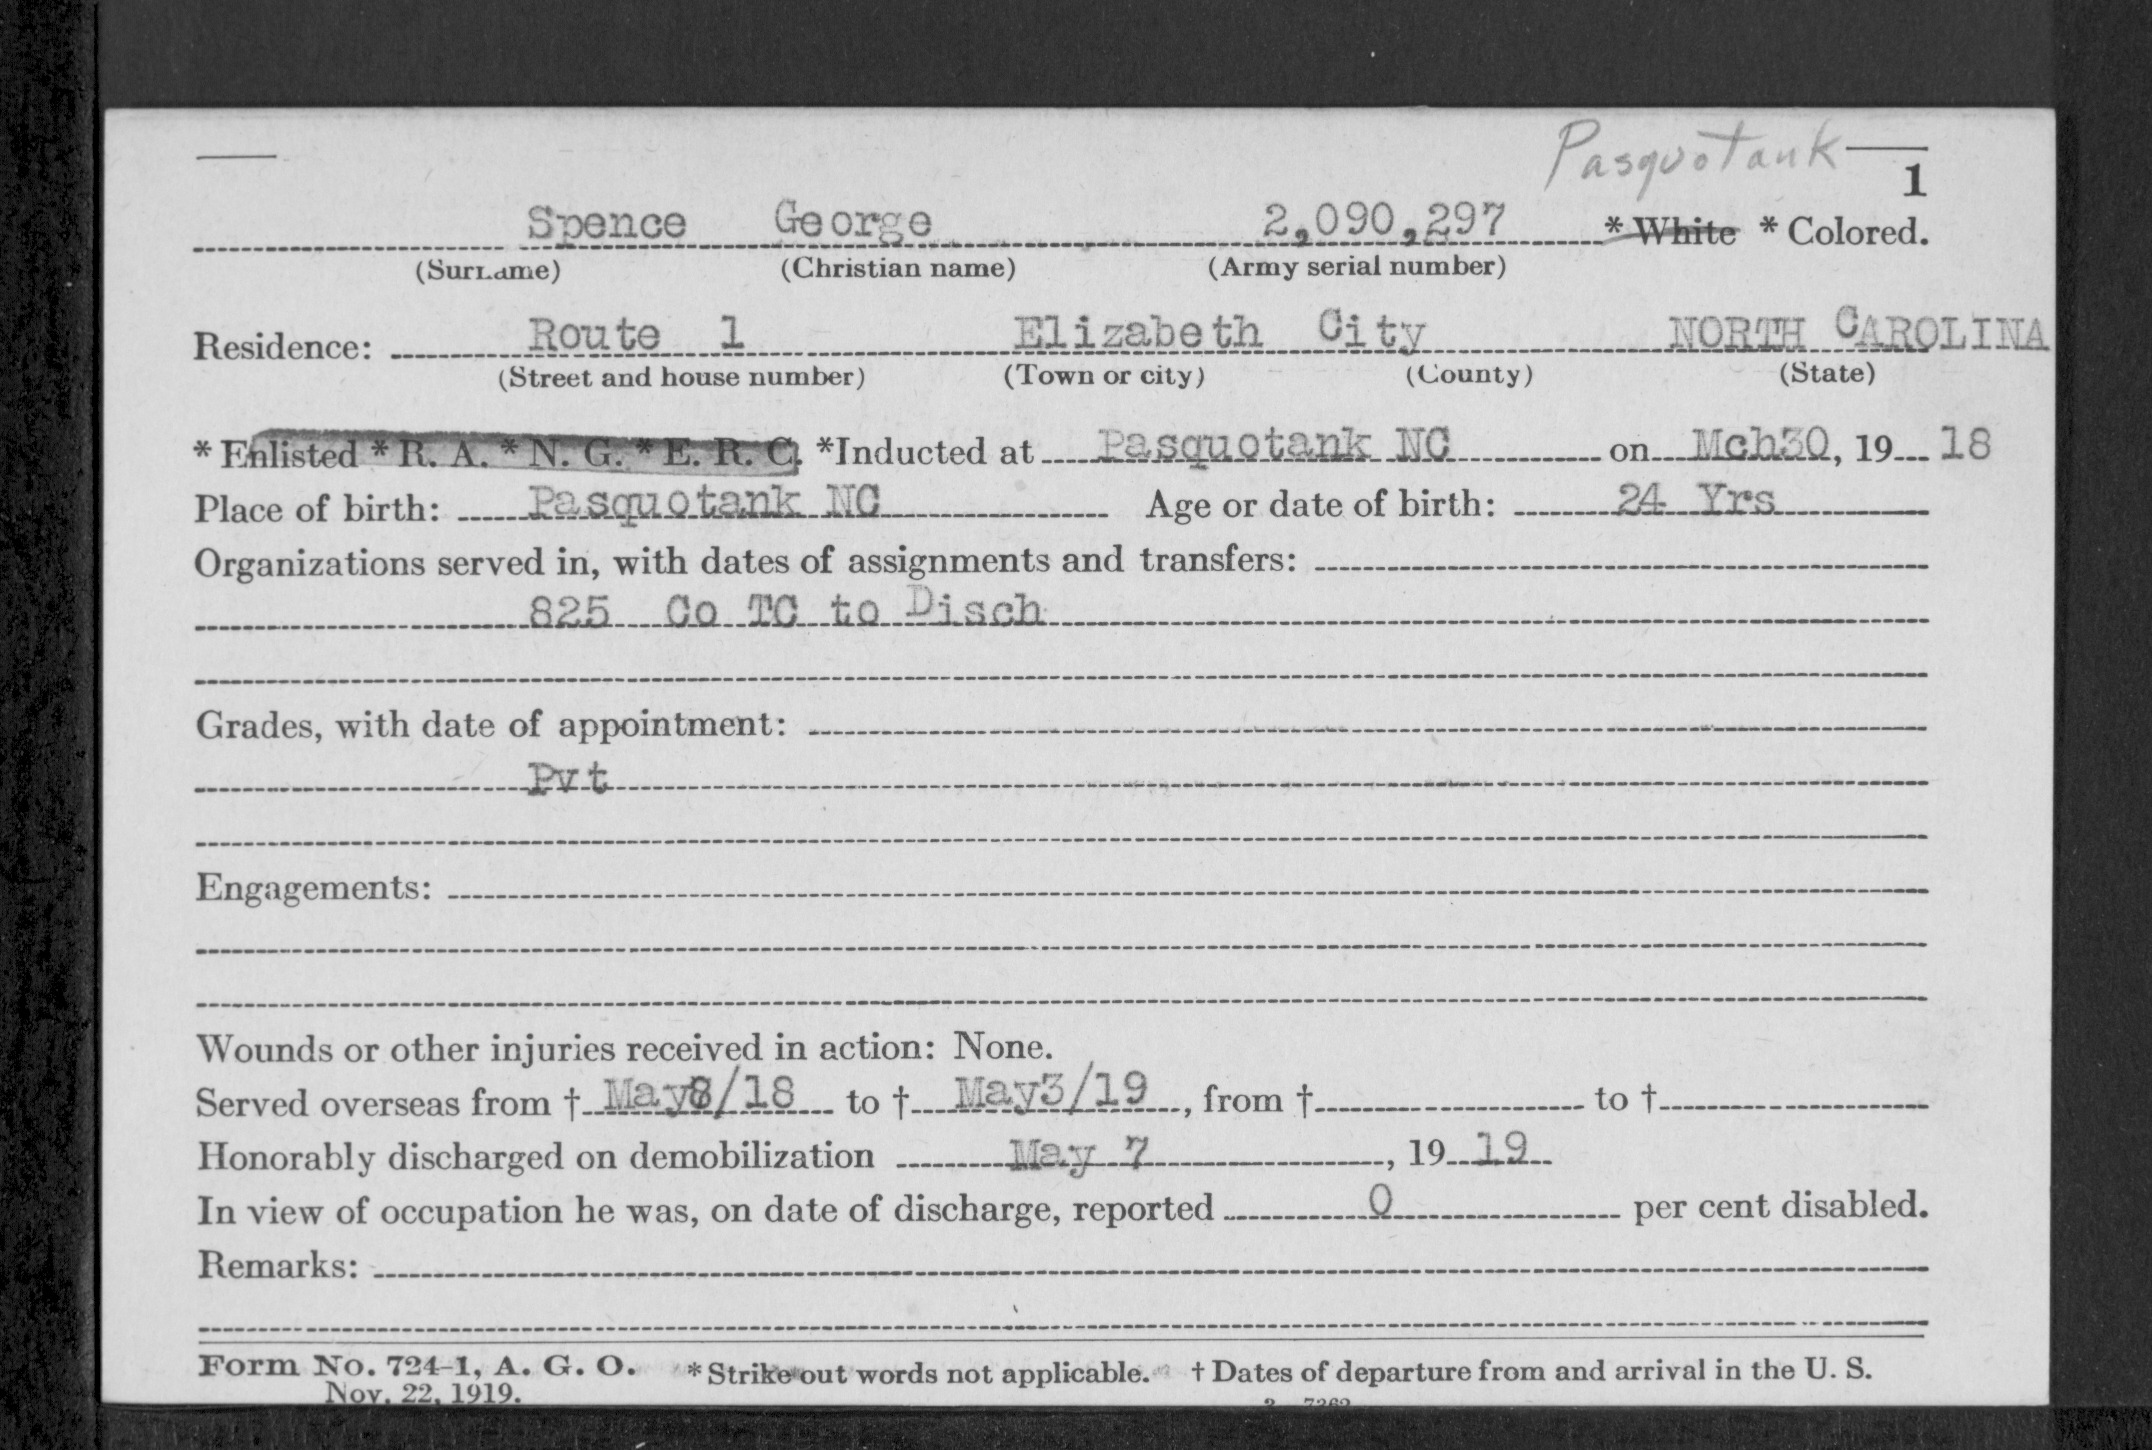 Pasquotank
1
Spence George 2,090,297 * White * Colored.
(Surname) (Christian name) (Army serial number)
Residence: Route 1 Elizabeth City NORTH CAROLINA
(Street and house number) (Town or city) (County) (State)
* Enlisted * R. A. * N. G. * E. R. C. *Inducted at Pasquotank NC on Mch30, 19 18
Place of birth: Pasquotank NC Age or date of birth: 24 Yrs
Organizations served in, with dates of assignments and transfers:
825 Co TC to Disch
Grades, with date of appointment:
Pvt
Engagements:
Wounds or other injuries received in action: None.
Served overseas from † May8/18 to † May3/19, from † to †
Honorably discharged on demobilization May 7, 19 19
In view of occupation he was, on date of discharge, reported 0 per cent disabled.
Remarks:
Form No. 724-1, A. G. O. * Strike out words not applicable. † Dates of departure from and arrival in the U. S.
Nov. 22, 1919.